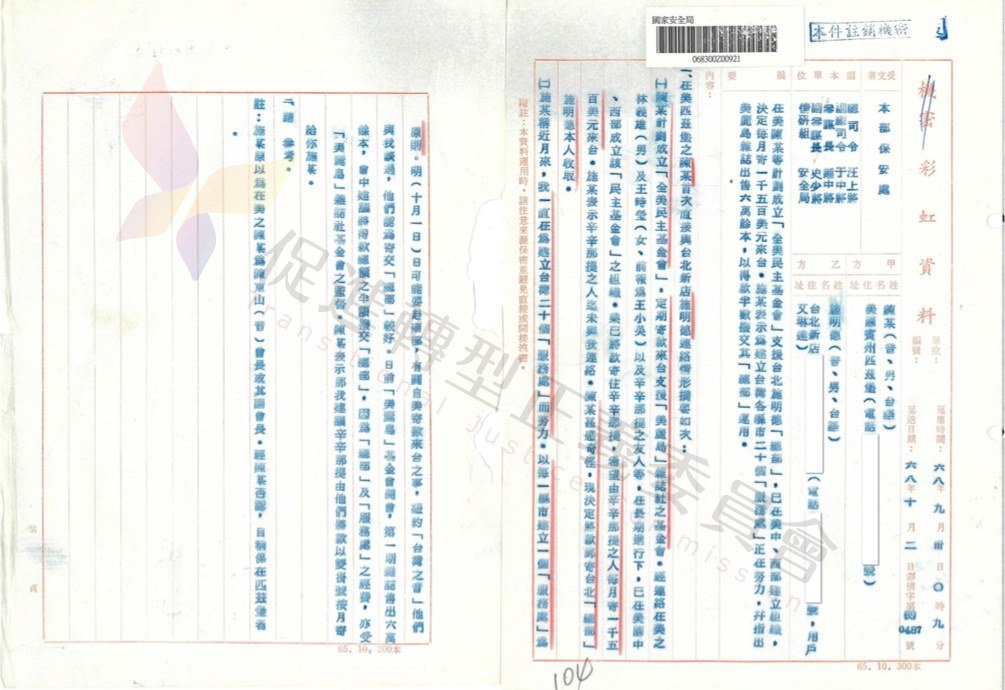 國家安全局
068300Z00921
本件註銷機密
機密 彩虹資料
單位:
編號:
蒐集時間:六八年九月卅日〇時九分
呈送日期:六八年十月二日彩情字第 0487 號
受文者
本部保安處
副本單位
總司令 汪上將
副總司令 于中將
參謀長 鍾中將
副參謀長 史少將
情研組 安全局
甲方
姓名 陳某(音、男、台語)
住址 美國賓州匹茲堡(電話 號)
乙方
姓名 施明德(音、男、台語)
住址 台北新店(電話 號,用戶
艾琳達)
摘要
在美陳某等計劃成立「全美民主基金會」支援台北施明德「總部」,已在美中、西部建立組織,
決定每月寄一千五百美元來台。施某表示為建立台灣各縣市二十個「服務處」正在努力,并指出
美麗島雜誌出售六萬餘本,以得款半數撥交其「總部」運用。
內容:
一、在美匹茲堡之陳某首次直接與台北新店施明德連絡情形摘要如次:
㈠陳某計劃成立「全美民主基金會」,定期寄款來台支援「美麗島」雜誌社之基金會。經連絡在美之
林義雄(男)及王時瑩(女、前報為王小英)以及辛辛那提之友人等,在長期進行下,已在美國中
、西部成立該「民主基金會」之組織。渠已將款寄往辛辛那提,希望由辛辛那提之人每月寄一千五
百美元來台。施某表示辛辛那提之人迄未與我連絡。陳某甚感奇怪,現決定將款寄台北「總部」
施明德本人收取。
㈡施某稱近月來,我一直在為建立台灣二十個「服務處」而努力。以每一縣市建立一個「服務處」為
附註:本資料運用時,請注意來源保密並避免直接或間接洩密。
65.10.300本
104
原則。明(十月一日)日可能要足額部,有關自美寄款來台之事,紐約「台灣之音」他們
與我談過,他們認為寄交「總部」較好。日前「美麗島」基金會開會,第一期雜誌售出六萬
餘本,會中建議將得款總額半數撥交「總部」,因為「總部」及「服務處」之經費,亦受
「美麗島」雜誌社基金會之監督。陳某表示那我建議辛辛那提由他們將款以雙掛號按月寄
給你施某。
二、請 參考。
註:施某原以為在美之陳某為陳東山(音)會長或其副會長。經陳某否認,自稱係在匹茲堡者
。
第 頁
65.10.200本
促進轉型正義委員會
Transitional Justice Commission